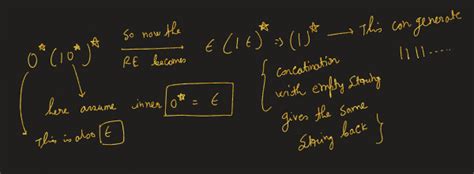 0*(10*)* So now the RE becomes → ϵ(1ϵ)* ⇒ (1)* → This can generate
1111.....
here assume inner 0* = ϵ
This is also ϵ
{ concatination
with empty string
gives the same
string back }